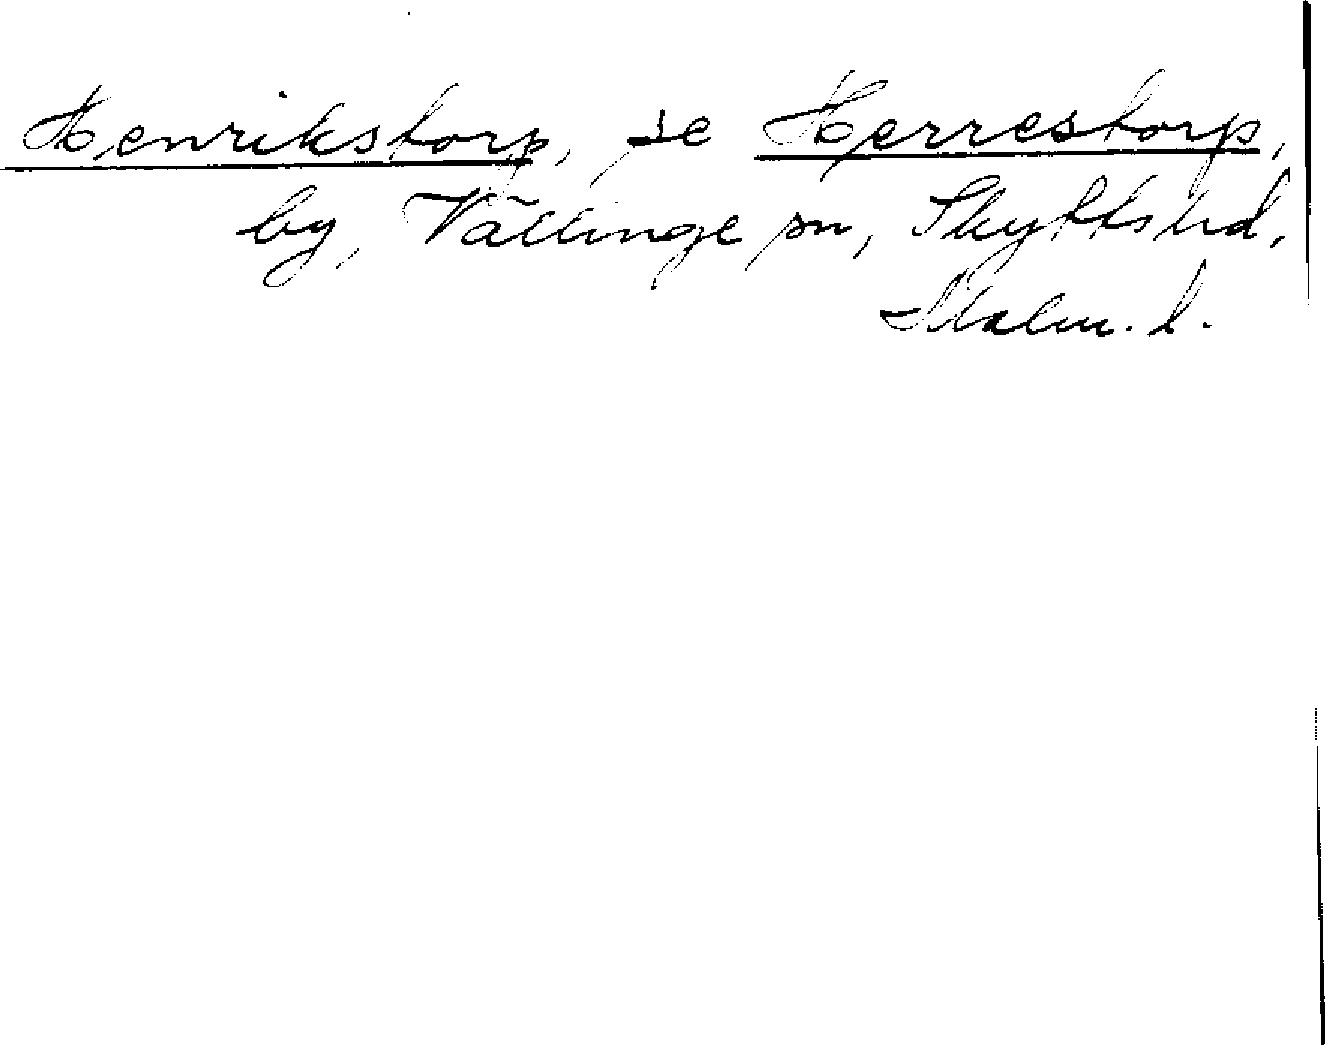 Henrikstorp, se Herrestorp,
by, Vällinge sn, Skytts hd,
Malm. l.